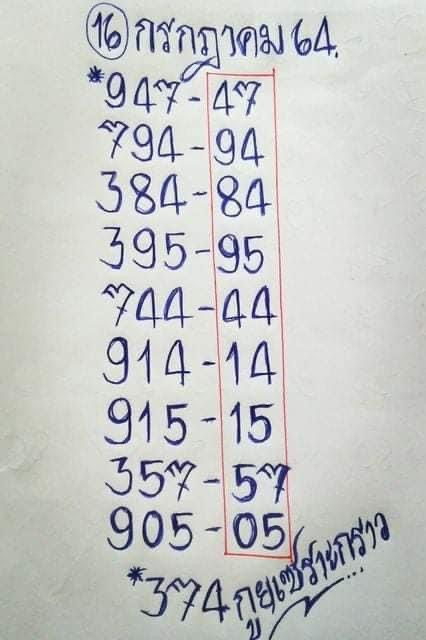 16 กรกฎาคม 64.
*947-47
794-94
384-84
395-95
744-44
914-14
915-15
357-57
905-05
*374